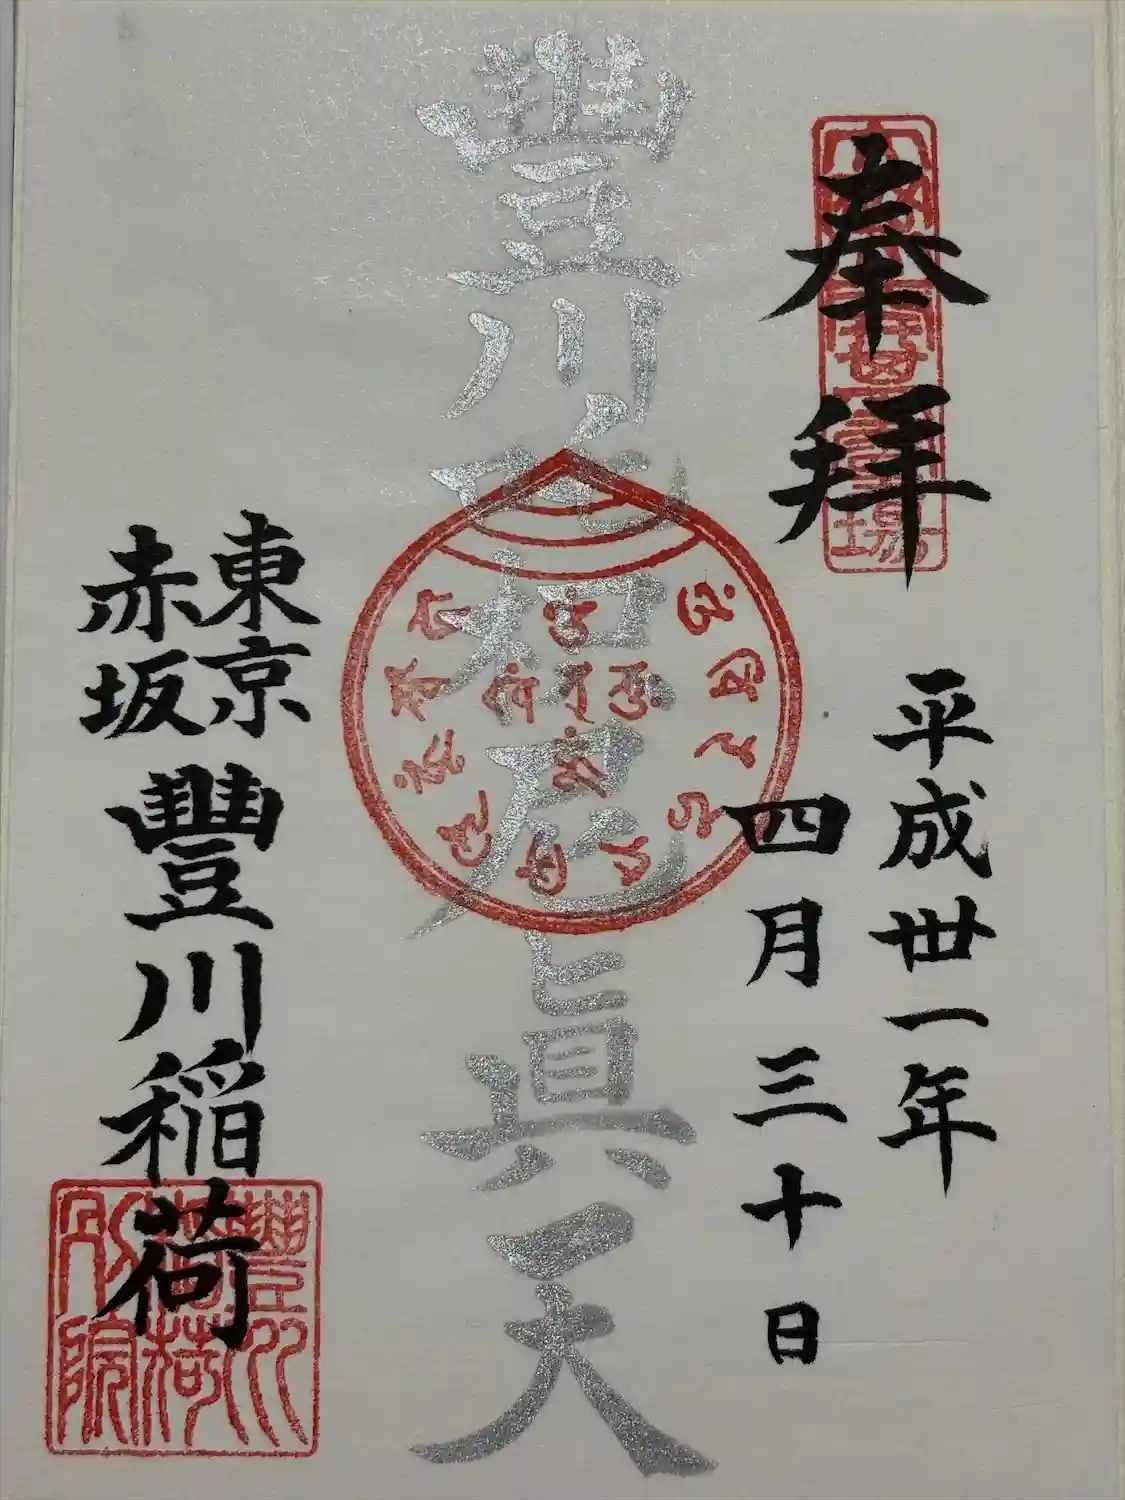 奉拝
平成丗一年
四月三十日
豐川吒枳尼眞天
東京
赤坂
豐川稲荷
豐川
稲荷
別院